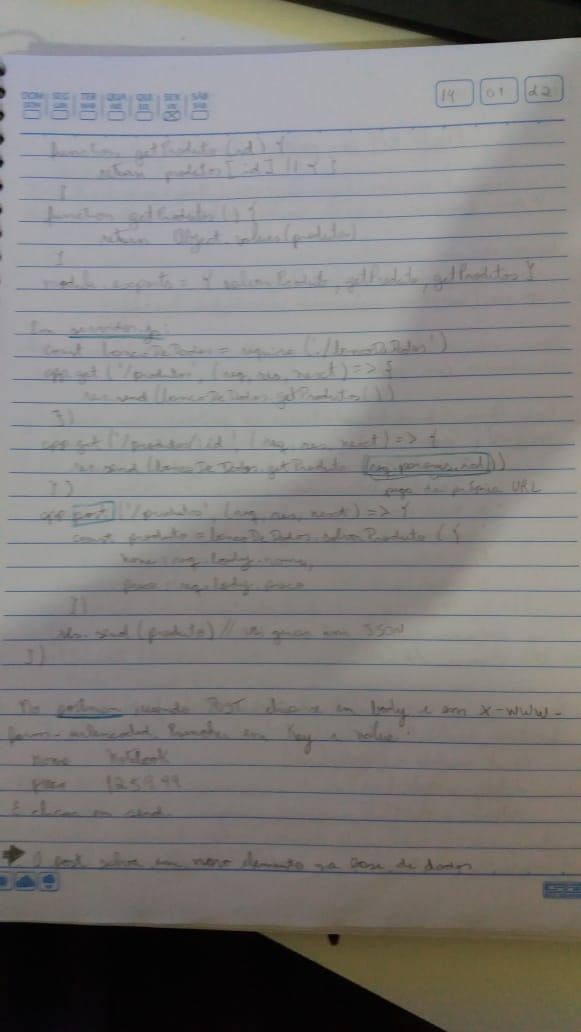 DOM SEG TER QUA QUI SEX SÁB
14 01 22
function getProduto (id) {
return produtos [id] || { }
}
function getProdutos () {
return Object.values(produtos)
}
module.exports = { salvarProduto, getProduto, getProdutos }
Em servidor.js:
const bancoDeDados = require ('./bancoDeDados')
app.get ('/produtos', (req, res, next) => {
res.send (bancoDeDados.getProdutos())
})
app.get ('/produtos/:id', (req, res, next) => {
res.send (bancoDeDados.getProduto (req.params.id))
})
pega da própria URL
app.post ('/produtos', (req, res, next) => {
const produto = bancoDeDados.salvarProduto ({
nome: req.body.nome,
preco: req.body.preco
})
res.send (produto) // vai gerar um JSON
})
No postman, usando POST clica-se em body e em x-www-
form-urlencoded. Preencher em Key e value:
nome notebook
preco 1259.99
E clicar em send.
O post salva um novo elemento na base de dados